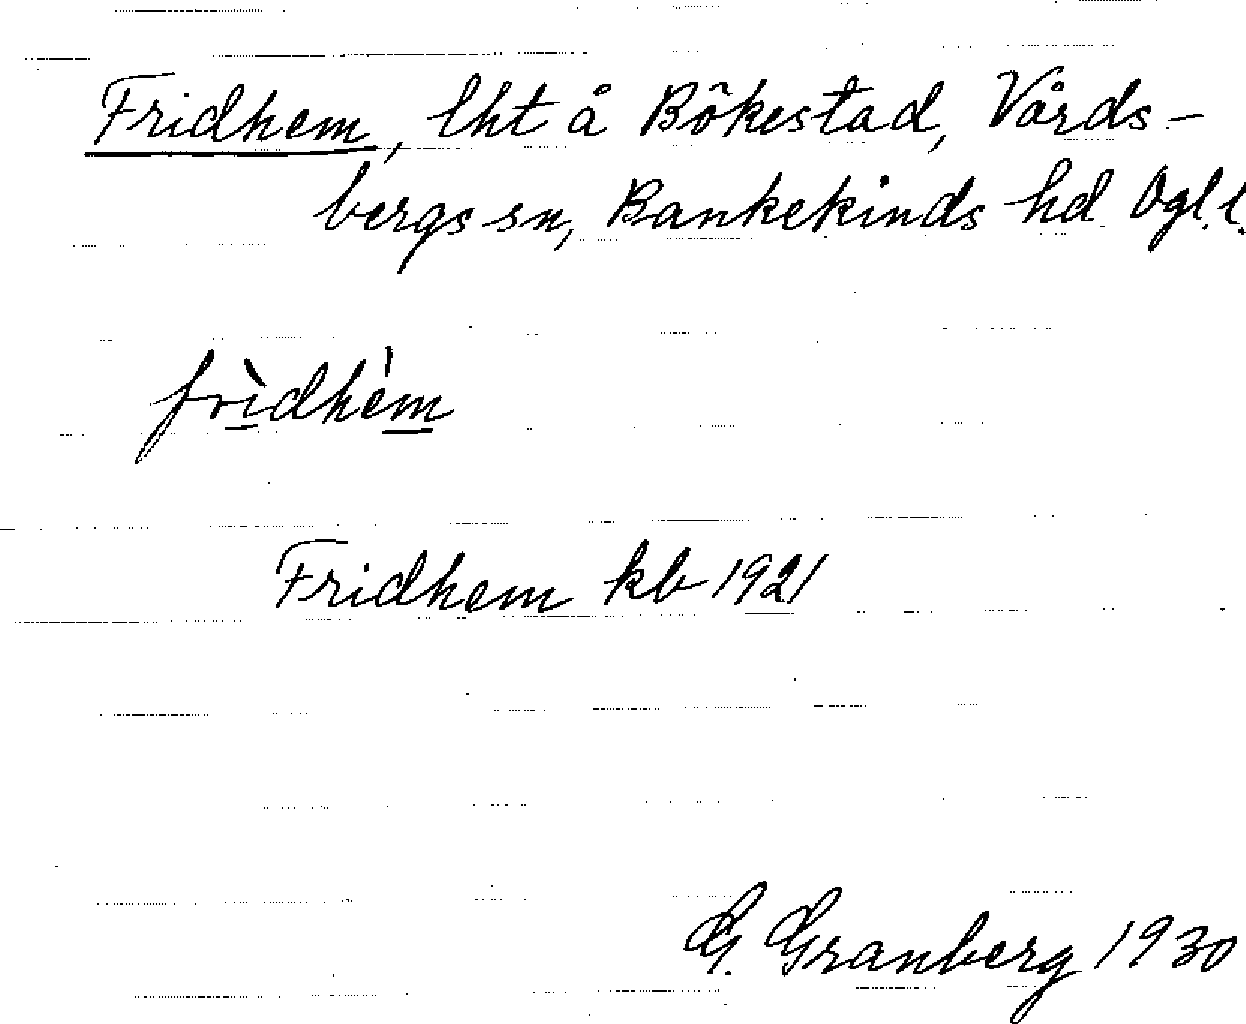 Fridhem, lht å Bökestad, Vårds-
bergs sn, Bankekinds hd Ögl.l.
frìdhèm
Fridhem kb 1921
G. Granberg 1930